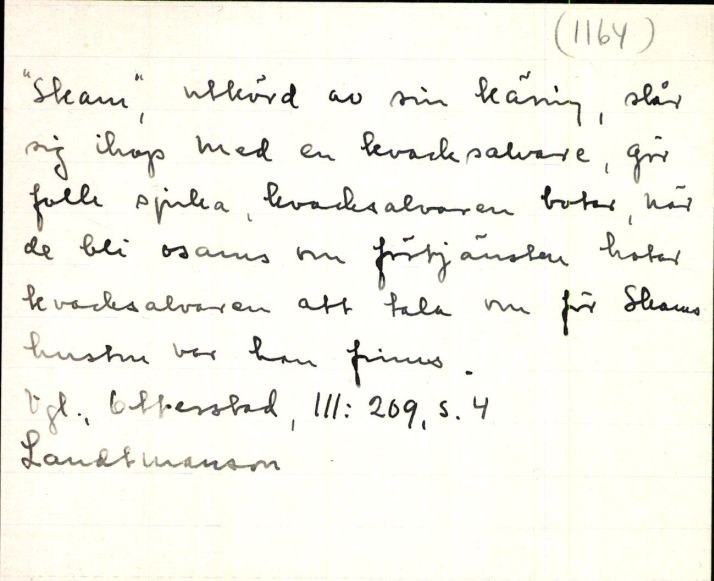 (1164)
"Skam", utkörd av sin käring, slår
sig ihop med en kvacksalvare, gör
folk sjuka, kvacksalvaren botar, när
de bli osams om förtjänsten hotar
kvacksalvaren att tala om för Skams
hustru var han finns.
Vgl., Otterstad, III: 269, s. 4
Landtmanson